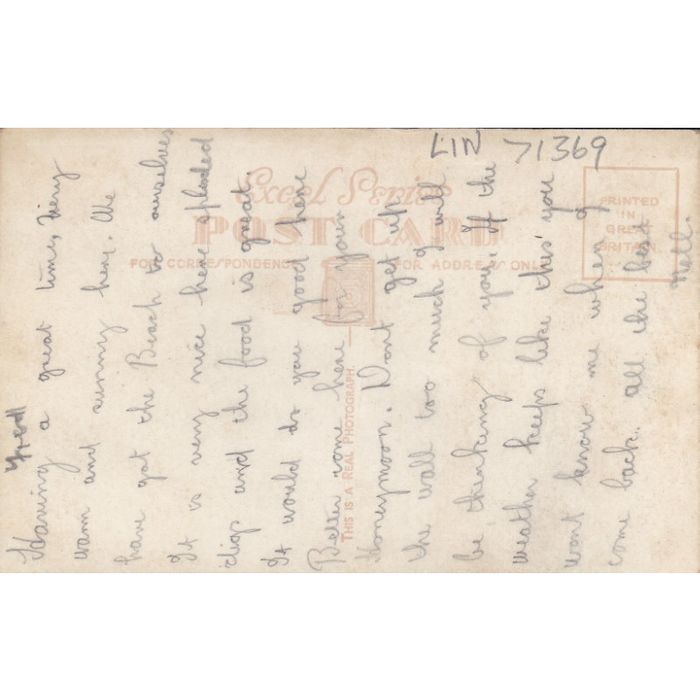 LIN 71369
Excel Series
POST CARD
FOR CORRESPONDENCE
FOR ADDRESS ONLY
PRINTED
IN
GREAT
BRITAIN
THIS IS A REAL PHOTOGRAPH.
Having a great time, very
warm and sunny here. We
have got the Beach to ourselves
It is very nice here sploded
digs and the food is great.
It would do you good here
Better come here for your
Honeymoon. Dont get up
the wall too much I will
be thinking of you. If the
weather keeps like this you
wont know me when I
come back. all the best